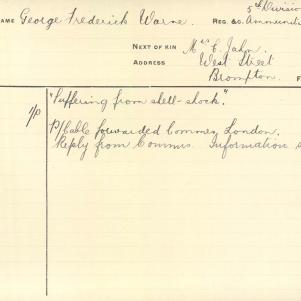 5th Division
NAME George Frederick Warne. REG. &c. Ammuniti
NEXT OF KIN Mrs C. Jahn.
ADDRESS West Street
Brompton. F
"Suffering from shell-shock".
Cable forwarded Commee, London.
Reply from Commrs. Information s